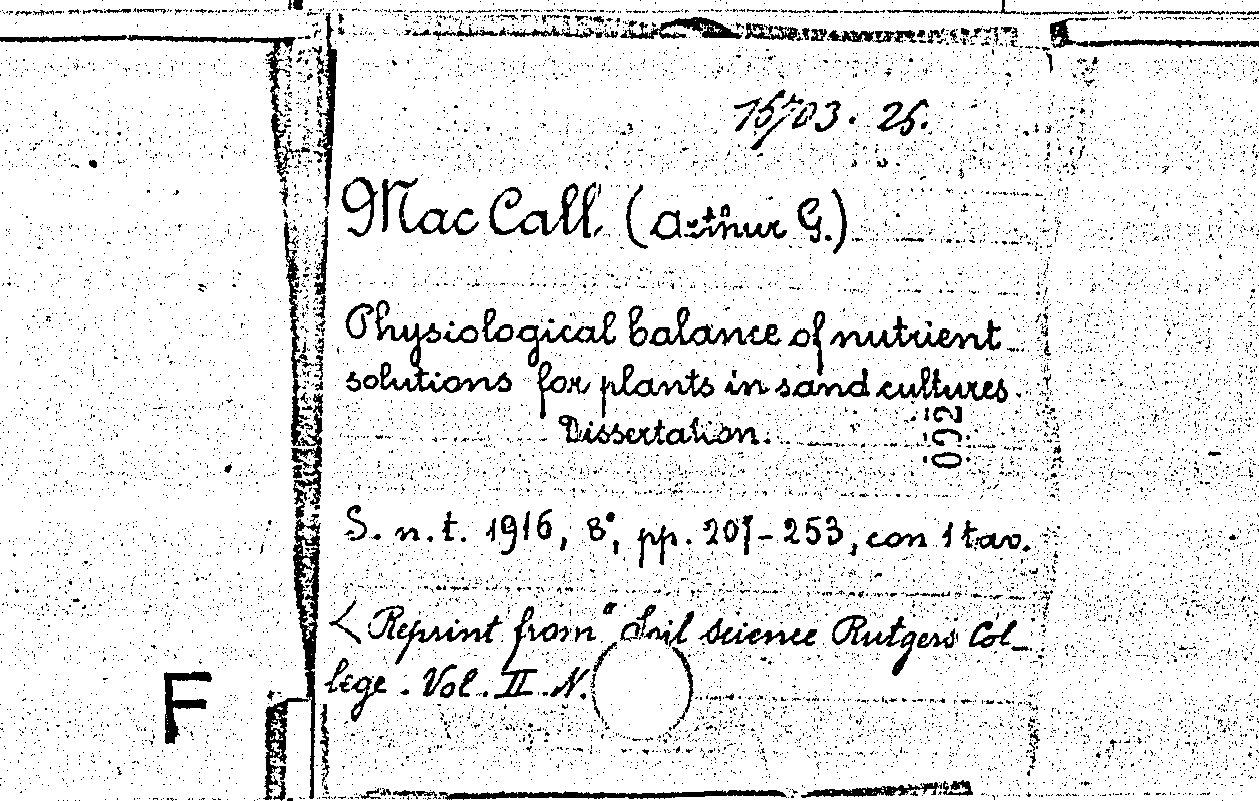 15703. 25.
Mac Call, (Arthur G.)
Physiological balance of nutrient
solutions for plants in sand cultures.
Dissertation.
002
S. n. t. 1916, 8°, pp. 207-253, con 1 tav.
< Reprint from "Soil Science Rutgers Col-
lege. Vol. II. N.
F